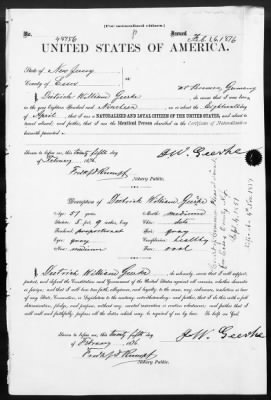 [For naturalized citizens.]
No. 49756
Issued Feb 26 1876
UNITED STATES OF AMERICA.
State of New Jersey
County of Essex
I, Dietrich William Geerke
at Bremen, Germany
in the year Eighteen Hundred and Nineteen on or about the
April
that I am a NATURALIZED AND LOYAL CITIZEN OF THE UNITED STATES, and about to
travel abroad; and further, that I am the Identical Person described in the Certificate of Naturalization
herewith presented.
Sworn to before me, this twenty fifth day
of February 1876
D. W. Geerke
Notary Public.
Description of Dietrich William Geerke
Age: 57 years
Mouth: medium
Stature: 5 ft 9 inches, Eng.
Chin:
Forehead: proportionate
Hair: gray
Eyes: gray
Complexion: healthy
Nose: medium
Face: oval
I, Dietrich William Geerke do solemnly swear that I will support,
protect, and defend the Constitution and Government of the United States against all enemies, whether domestic
or foreign; and that I will bear true faith, allegiance, and loyalty to the same, any ordinance, resolution or law
of any State, Convention, or Legislature to the contrary notwithstanding; and further, that I do this with a full
determination, pledge, and purpose, without any mental reservation or evasion whatsoever; and further, that I
will well and faithfully perform all the duties which may be required of me by law. So help me God.
Sworn to before me, this twenty fifth day
of February 1876
D. W. Geerke
Notary Public.